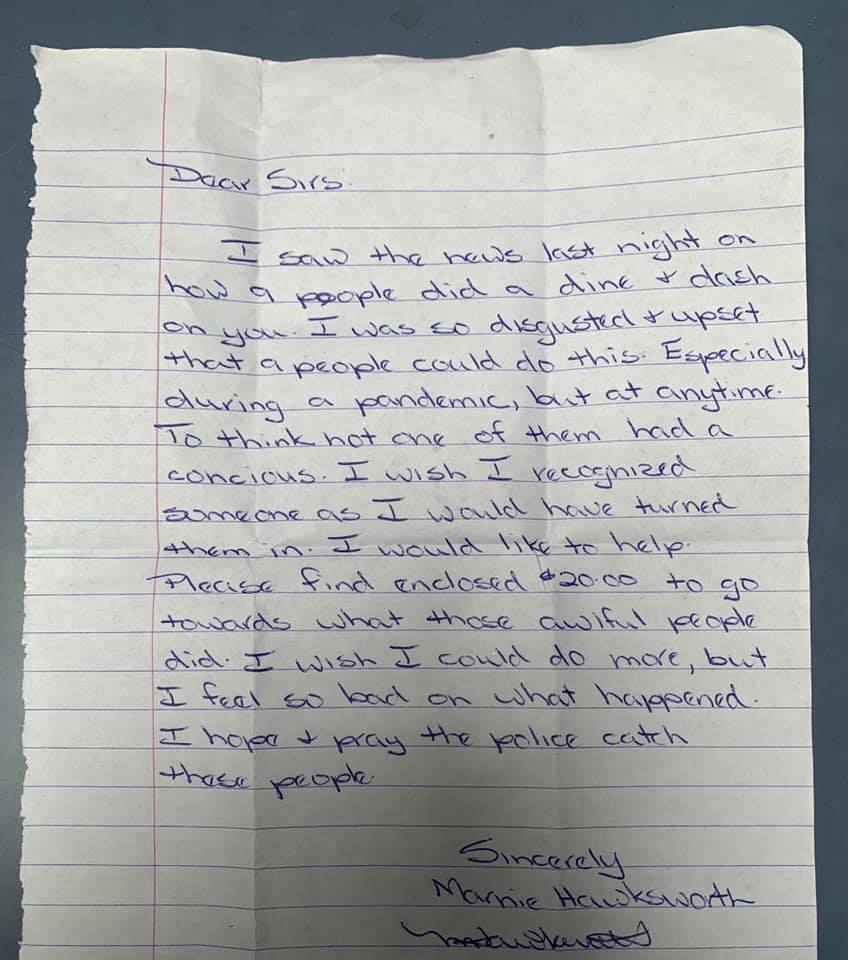 Dear Sirs.
I saw the news last night on
how 9 people did a dine + dash
on you. I was so disgusted + upset
that 9 people could do this. Especially
during a pandemic, but at anytime.
To think not one of them had a
concious. I wish I recognized
someone as I would have turned
them in. I would like to help.
Please find enclosed $20.00 to go
towards what those awiful people
did. I wish I could do more, but
I feel so bad on what happened.
I hope + pray the police catch
these people.
Sincerely
Marnie Hawksworth